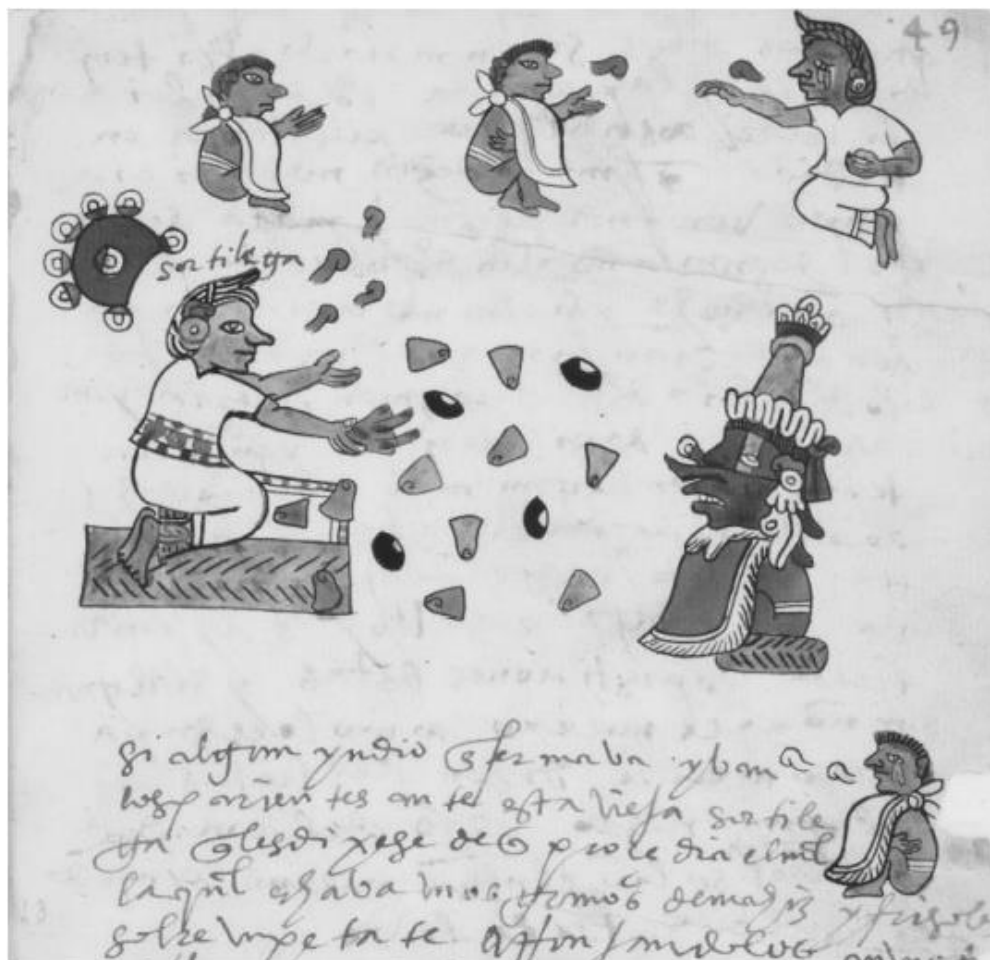 49
sortilega
si algun yndio enfermaba yban
los parientes ante esta vieja sortile
ga q les dixese de q procedia el mal
la qual echaba unos de mahiz y frisoles
sobre un petate